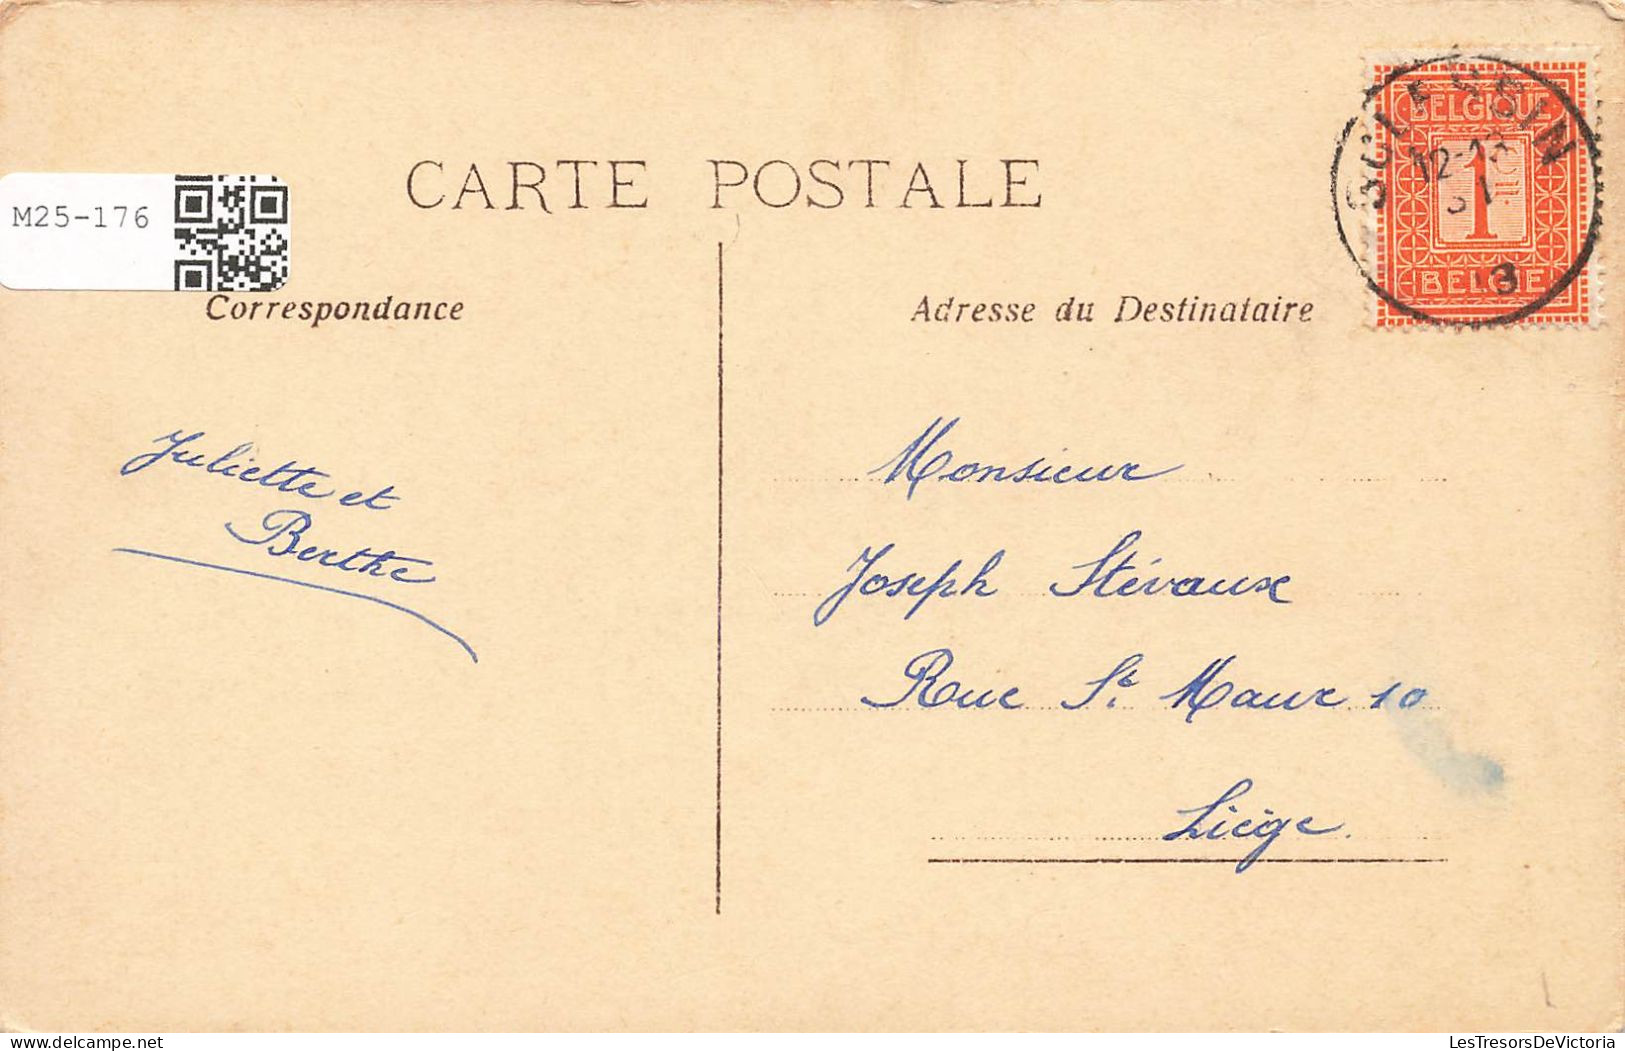 CARTE POSTALE
M25-176
Correspondance
Adresse du Destinataire
BELGIQUE
1
BELGIE
SCLESSIN
12-13
13
Juliette et
Berthe
Monsieur
Joseph Stévaux
Rue St Maur 10
Liège.
LesTresorsDeVictoria